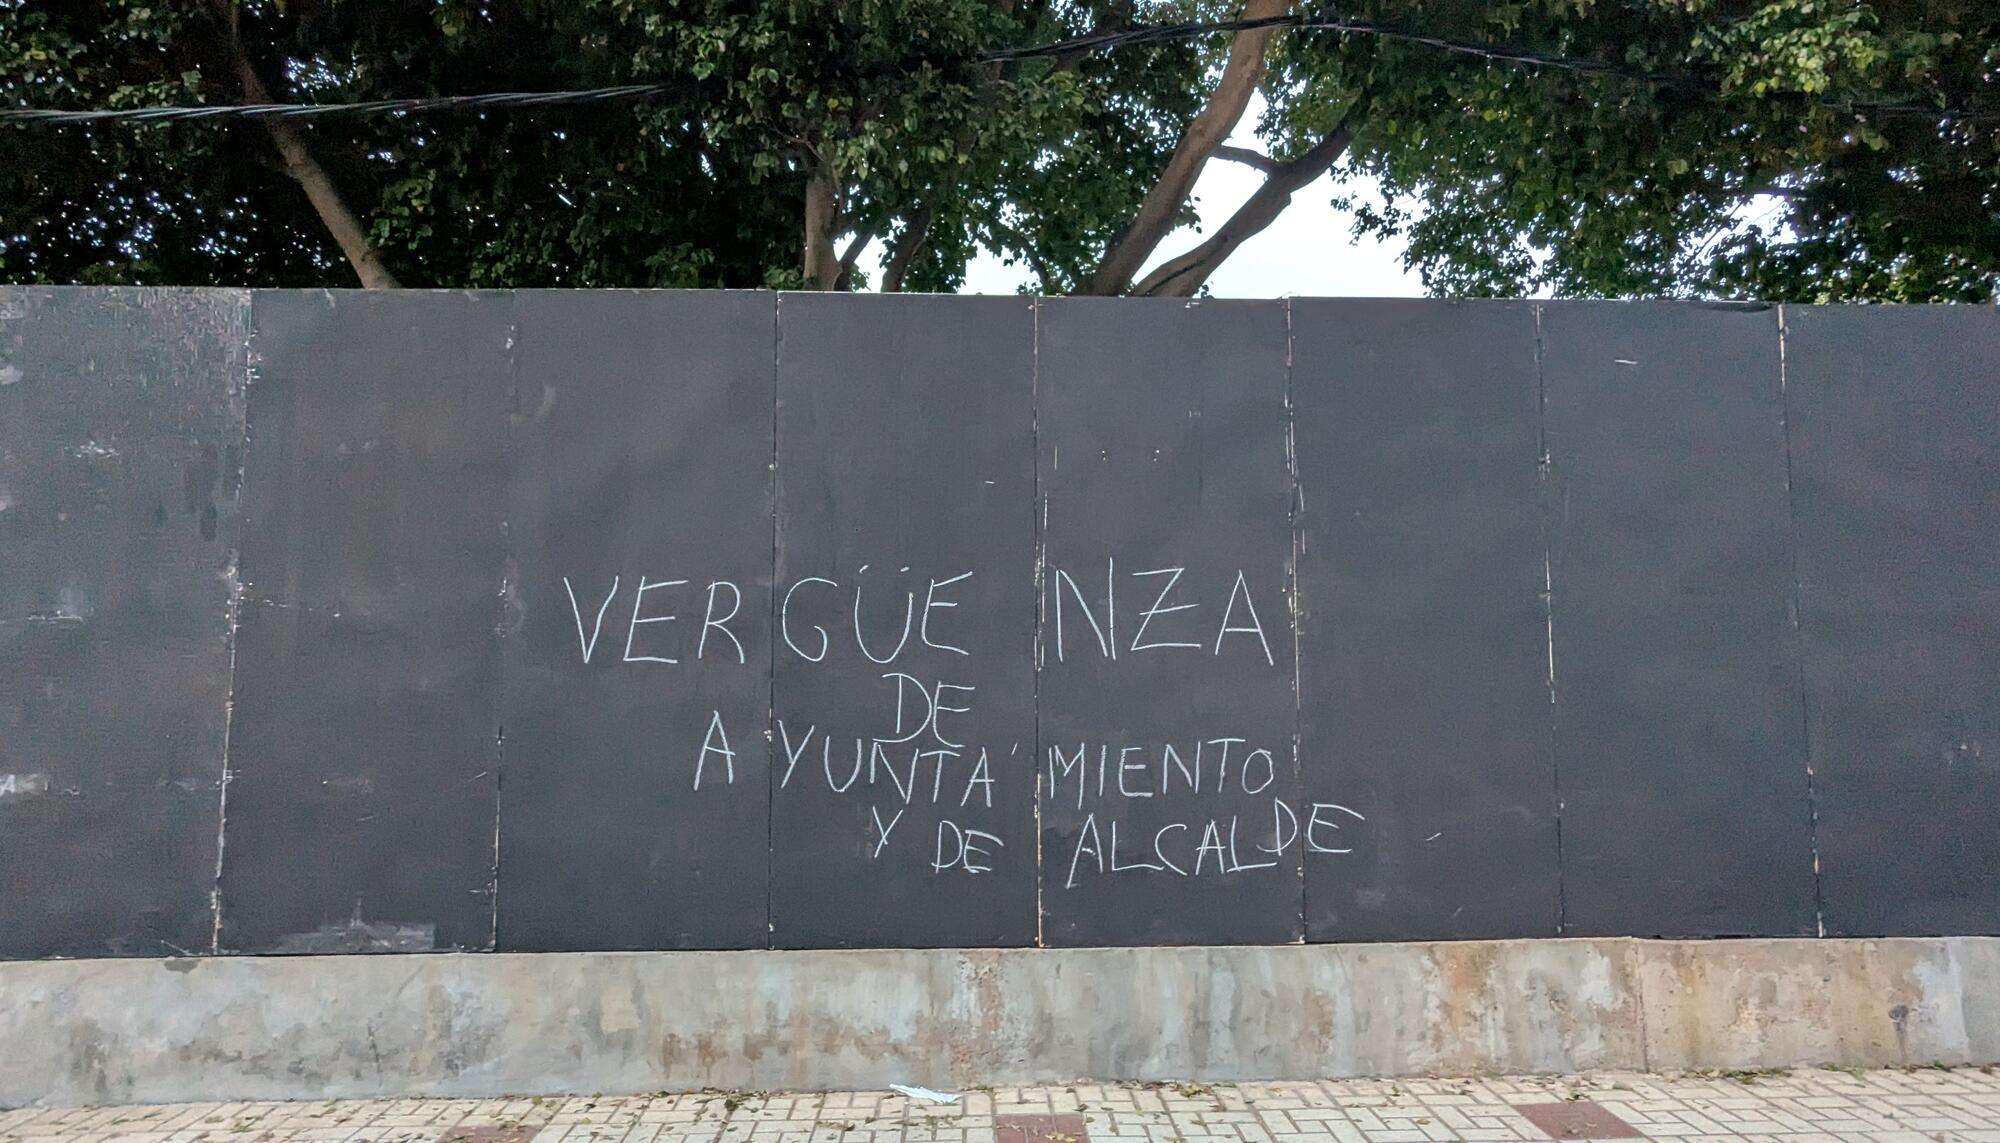 VERGÜENZA
DE
AYUNTAMIENTO
Y DE ALCALDE